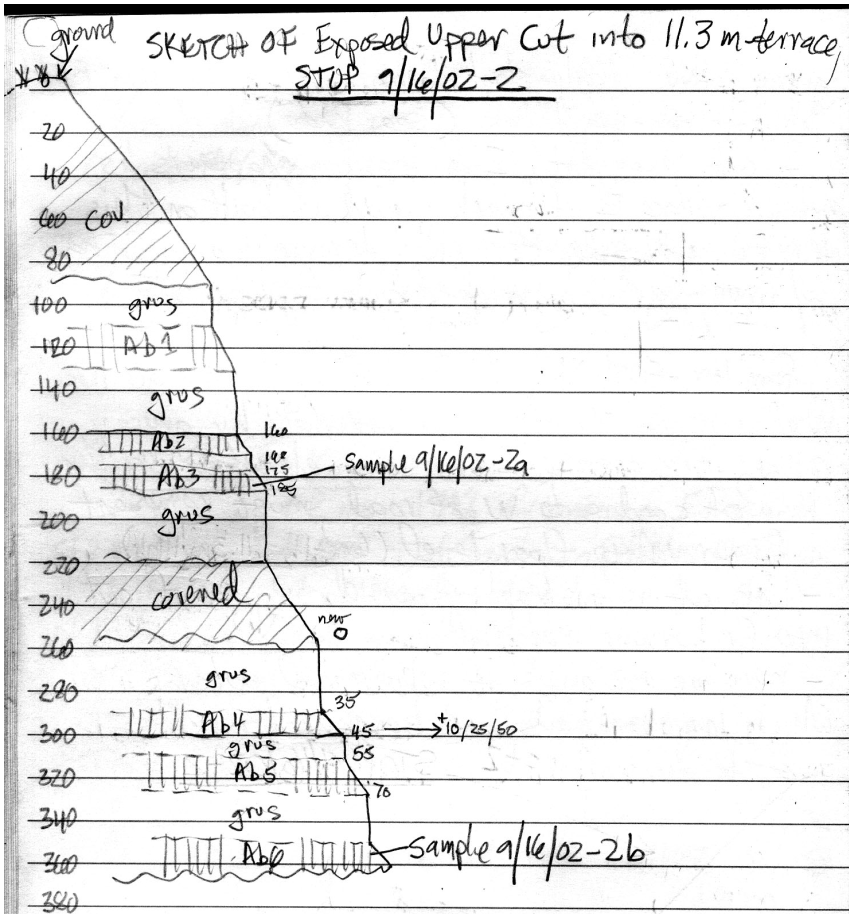 ground
SKETCH OF Exposed Upper Cut into 11.3 m terrace,
STOP 9/16/02-2
0
20
40
60 COV
80
100 grus
120 Ab1
140 grus
160 Ab2 160
168
175 Sample 9/16/02-2a
180 Ab3 185
200 grus
220
240 covered
new
260 0
280 grus
35
300 Ab4 45 +10/25/50
grus 55
320 Ab5 70
340 grus
360 Ab6 Sample 9/16/02-2b
380